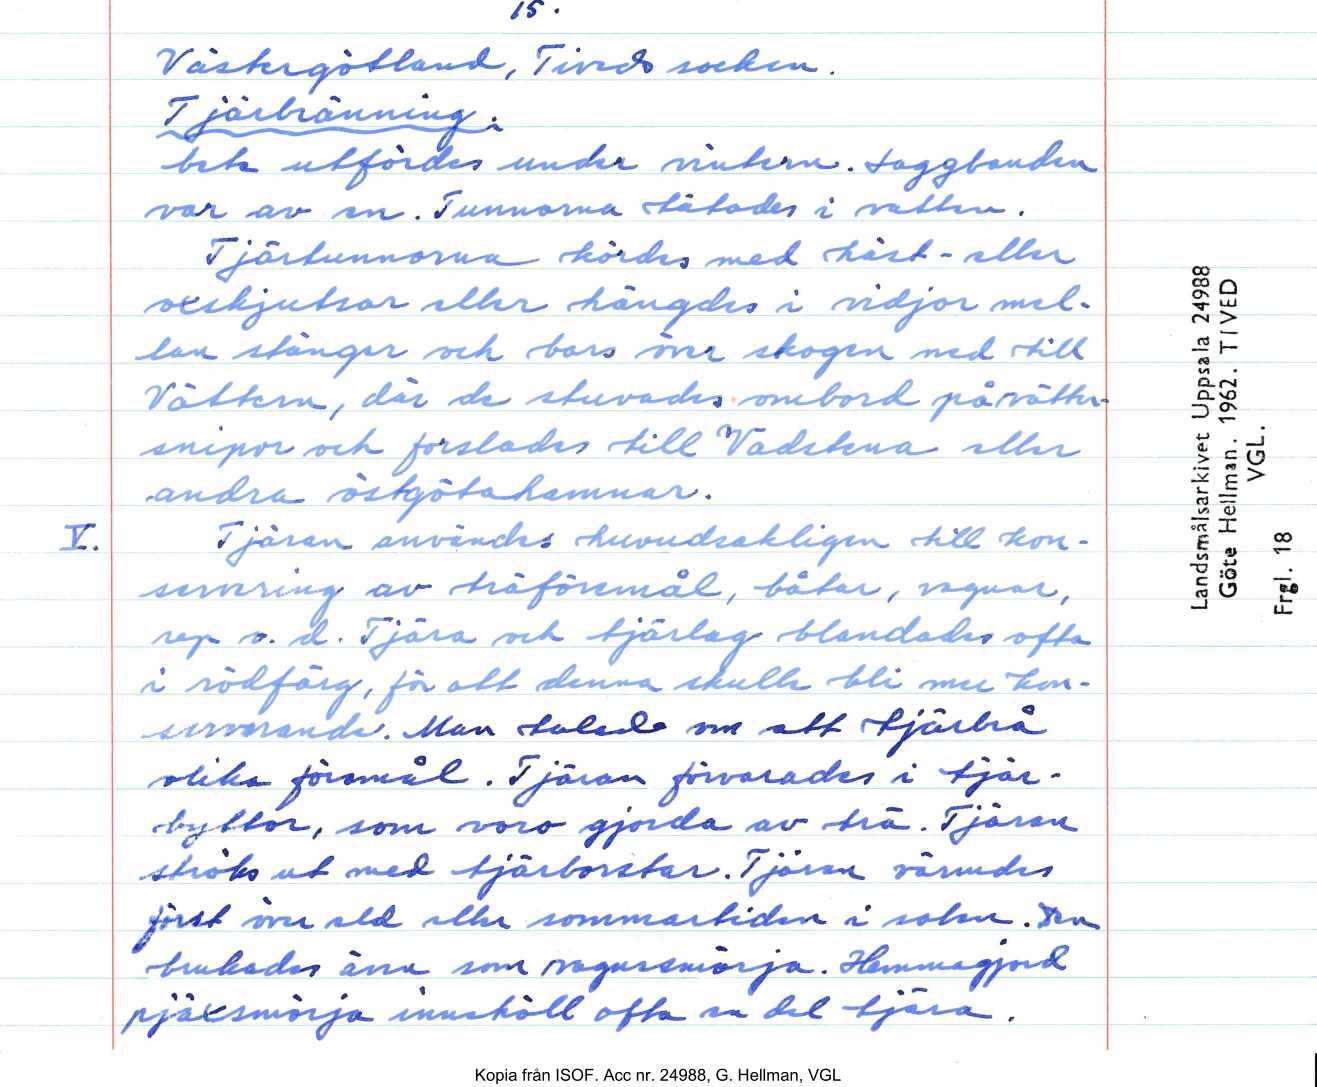 15.
Västergötland, Tiveds socken.
Tjärbränning.
bete utfördes under vintern. Laggbanden
var av en. Tunnorna tätades i vatten.
Tjärtunnorna kördes med häst- eller
oxskjutsar eller hängdes i vidjor mel-
lan stänger och bars över skogen ned till
Vättern, där de stuvades ombord på vätter-
snipor och forslades till Vadstena eller
andra östgötahamnar.
V. Tjäran användes huvudsakligen till kon-
servering av träföremål, båtar, vagnar,
rep o. d. Tjära och tjärlag blandades ofta
i rödfärg, för att denna skulle bli mer kon-
serverande. Man talade om att tjärbrå
olika föremål. Tjäran förvarades i tjär-
byttor, som voro gjorda av trä. Tjäran
ströks ut med tjärborstar. Tjäran värmdes
först över eld eller sommartiden i solen. Den
brukades även som vagnssmörja. Hemmagjord
pjäxsmörja innehöll ofta en del tjära.
Landsmålsarkivet Uppsala 24988
Göte Hellman. 1962. TIVED
VGL.
Frgl. 18
Kopia från ISOF. Acc nr. 24988, G. Hellman, VGL